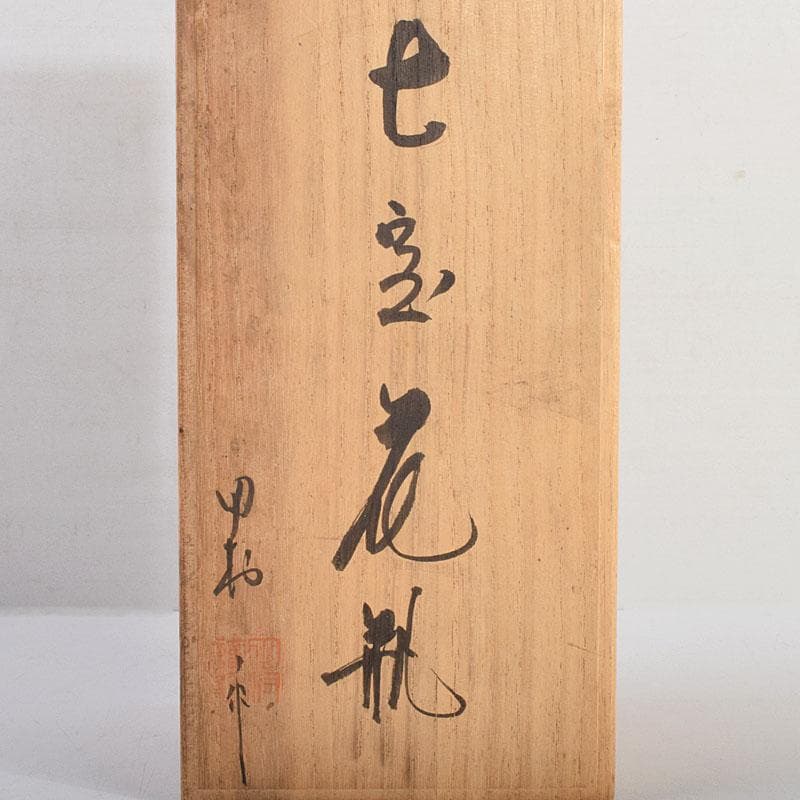 七宝花瓶
田村 作